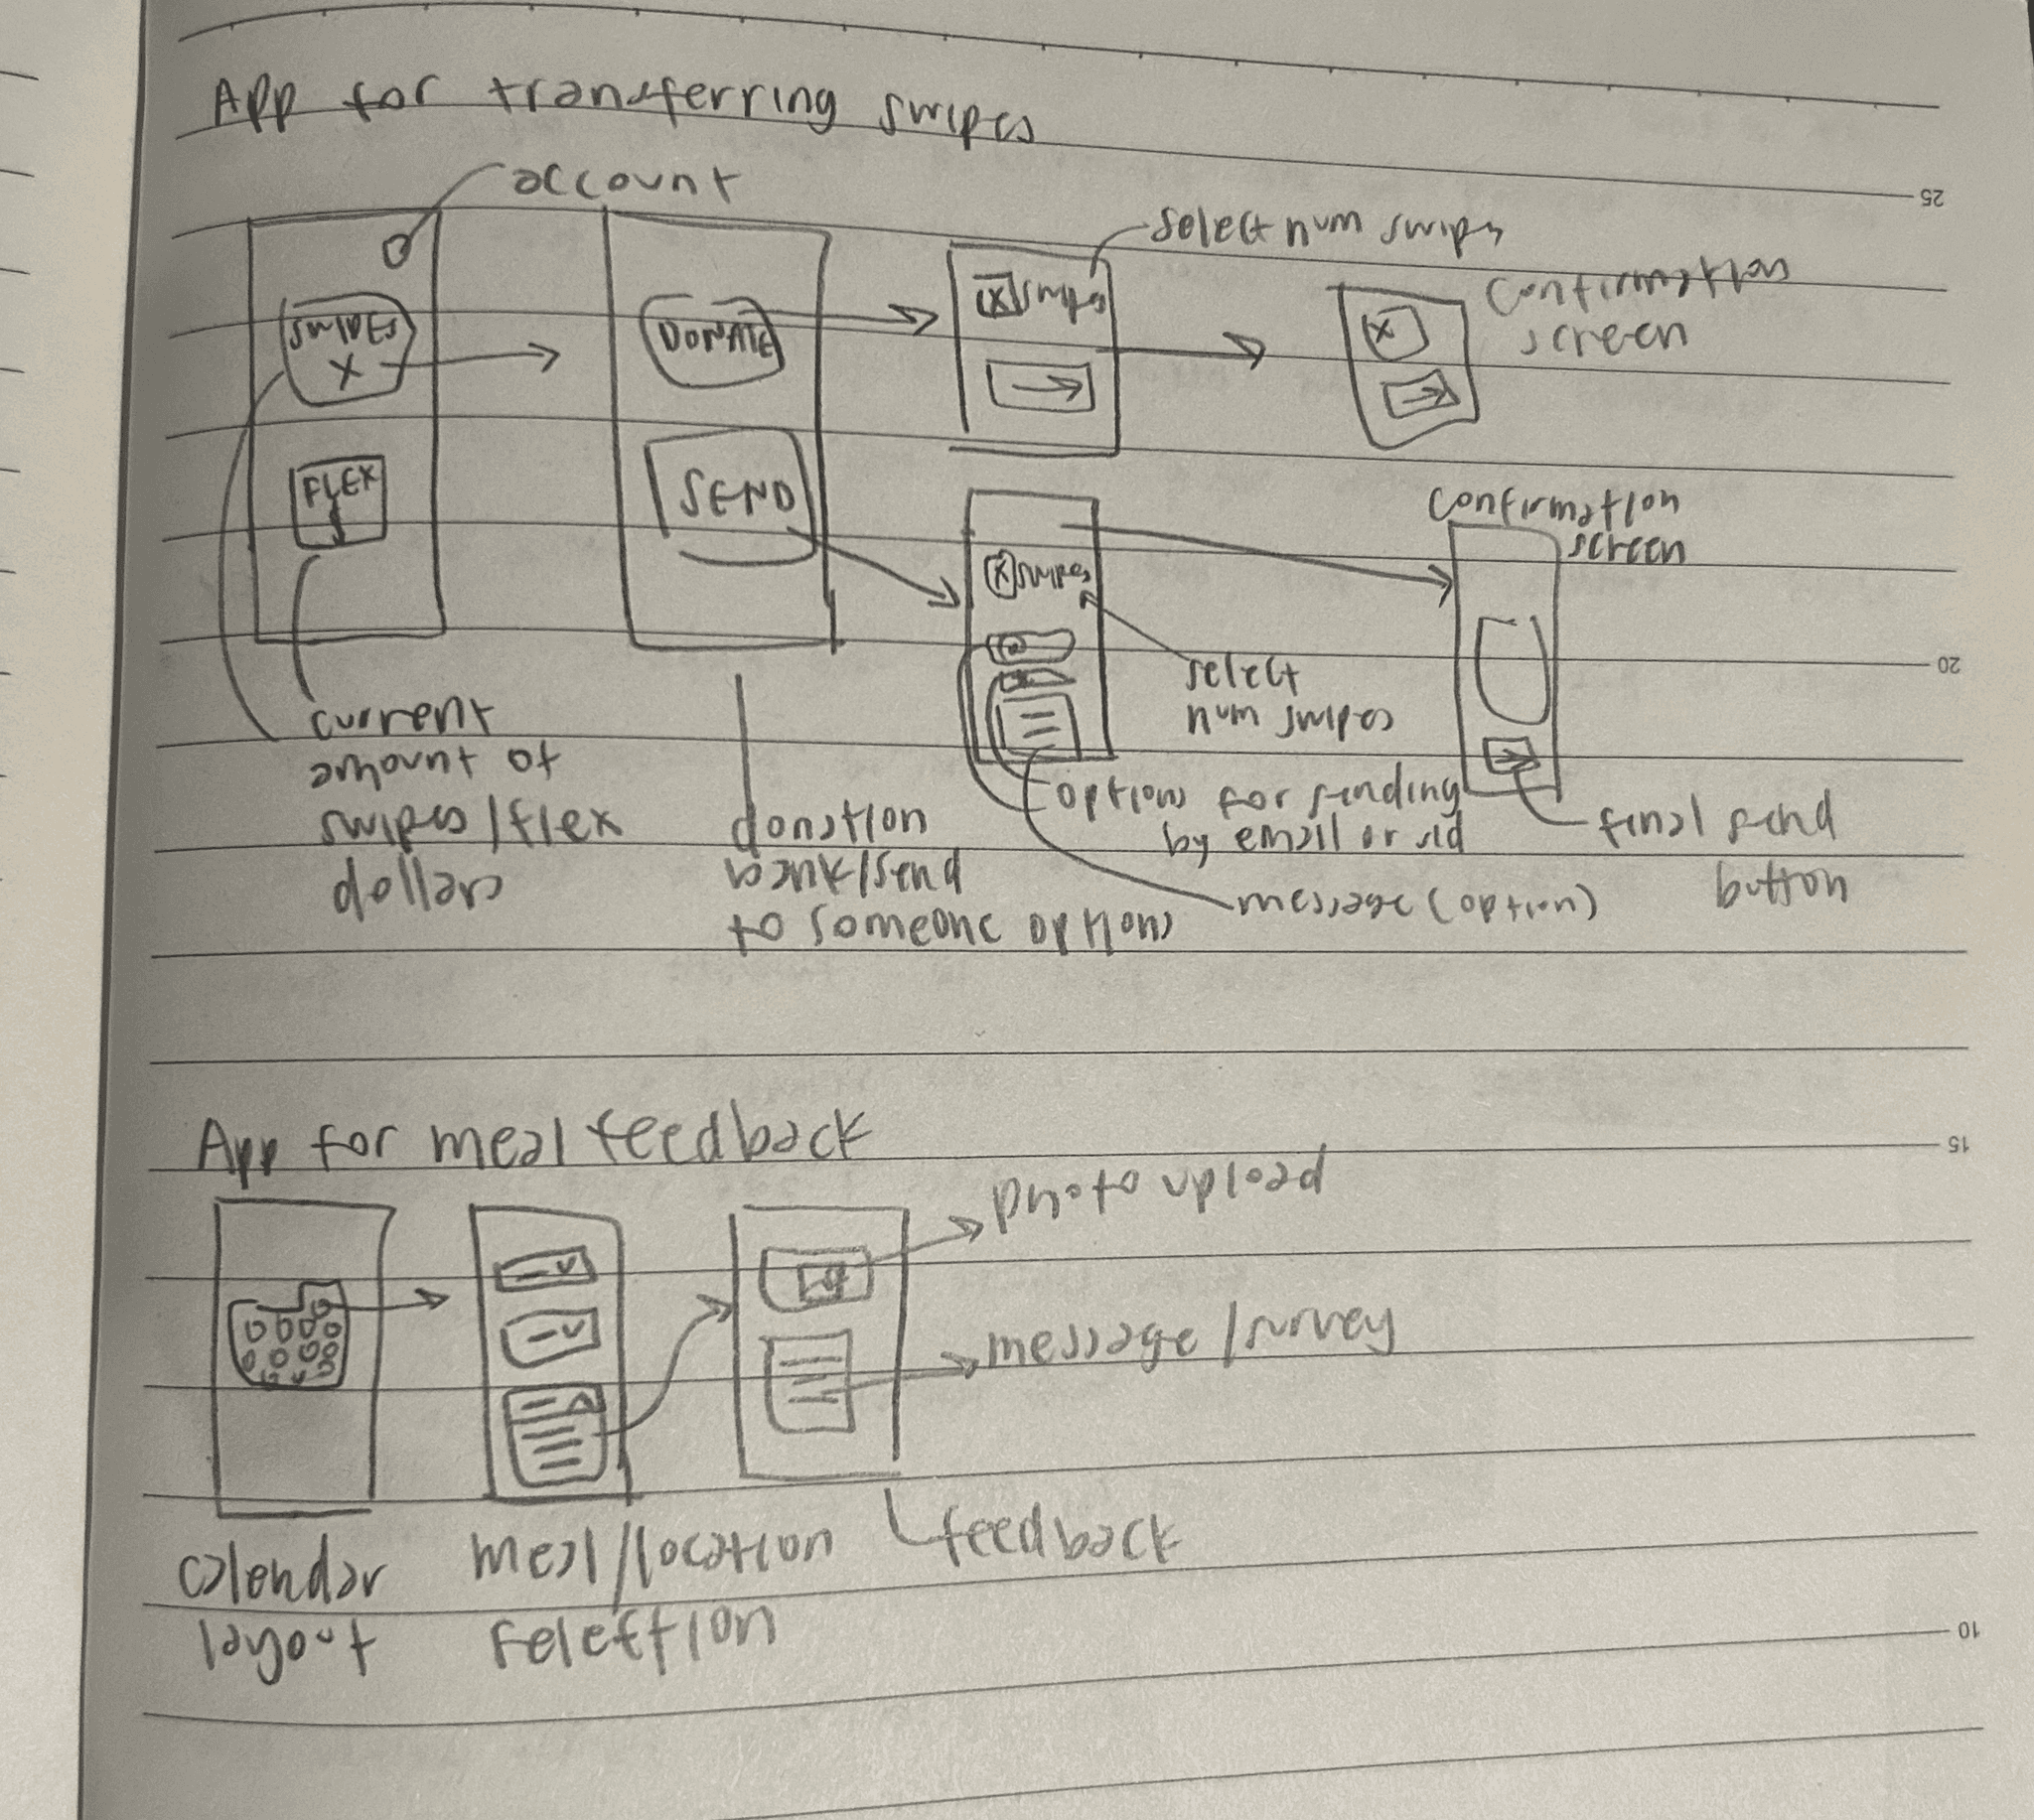 App for transferring swipes
account
SWIPES
X
FLEX
$
current
amount of
swipes/flex
dollars
DONATE
SEND
donation
bank/send
to someone options
select num swipes
X swipes
Confirmation
screen
X
X swipes
select
num swipes
options for sending
by email or sid
message (option)
confirmation
screen
final send
button
App for meal feedback
calendar
layout
meal/location
selection
photo upload
message/survey
feedback
25
20
15
10